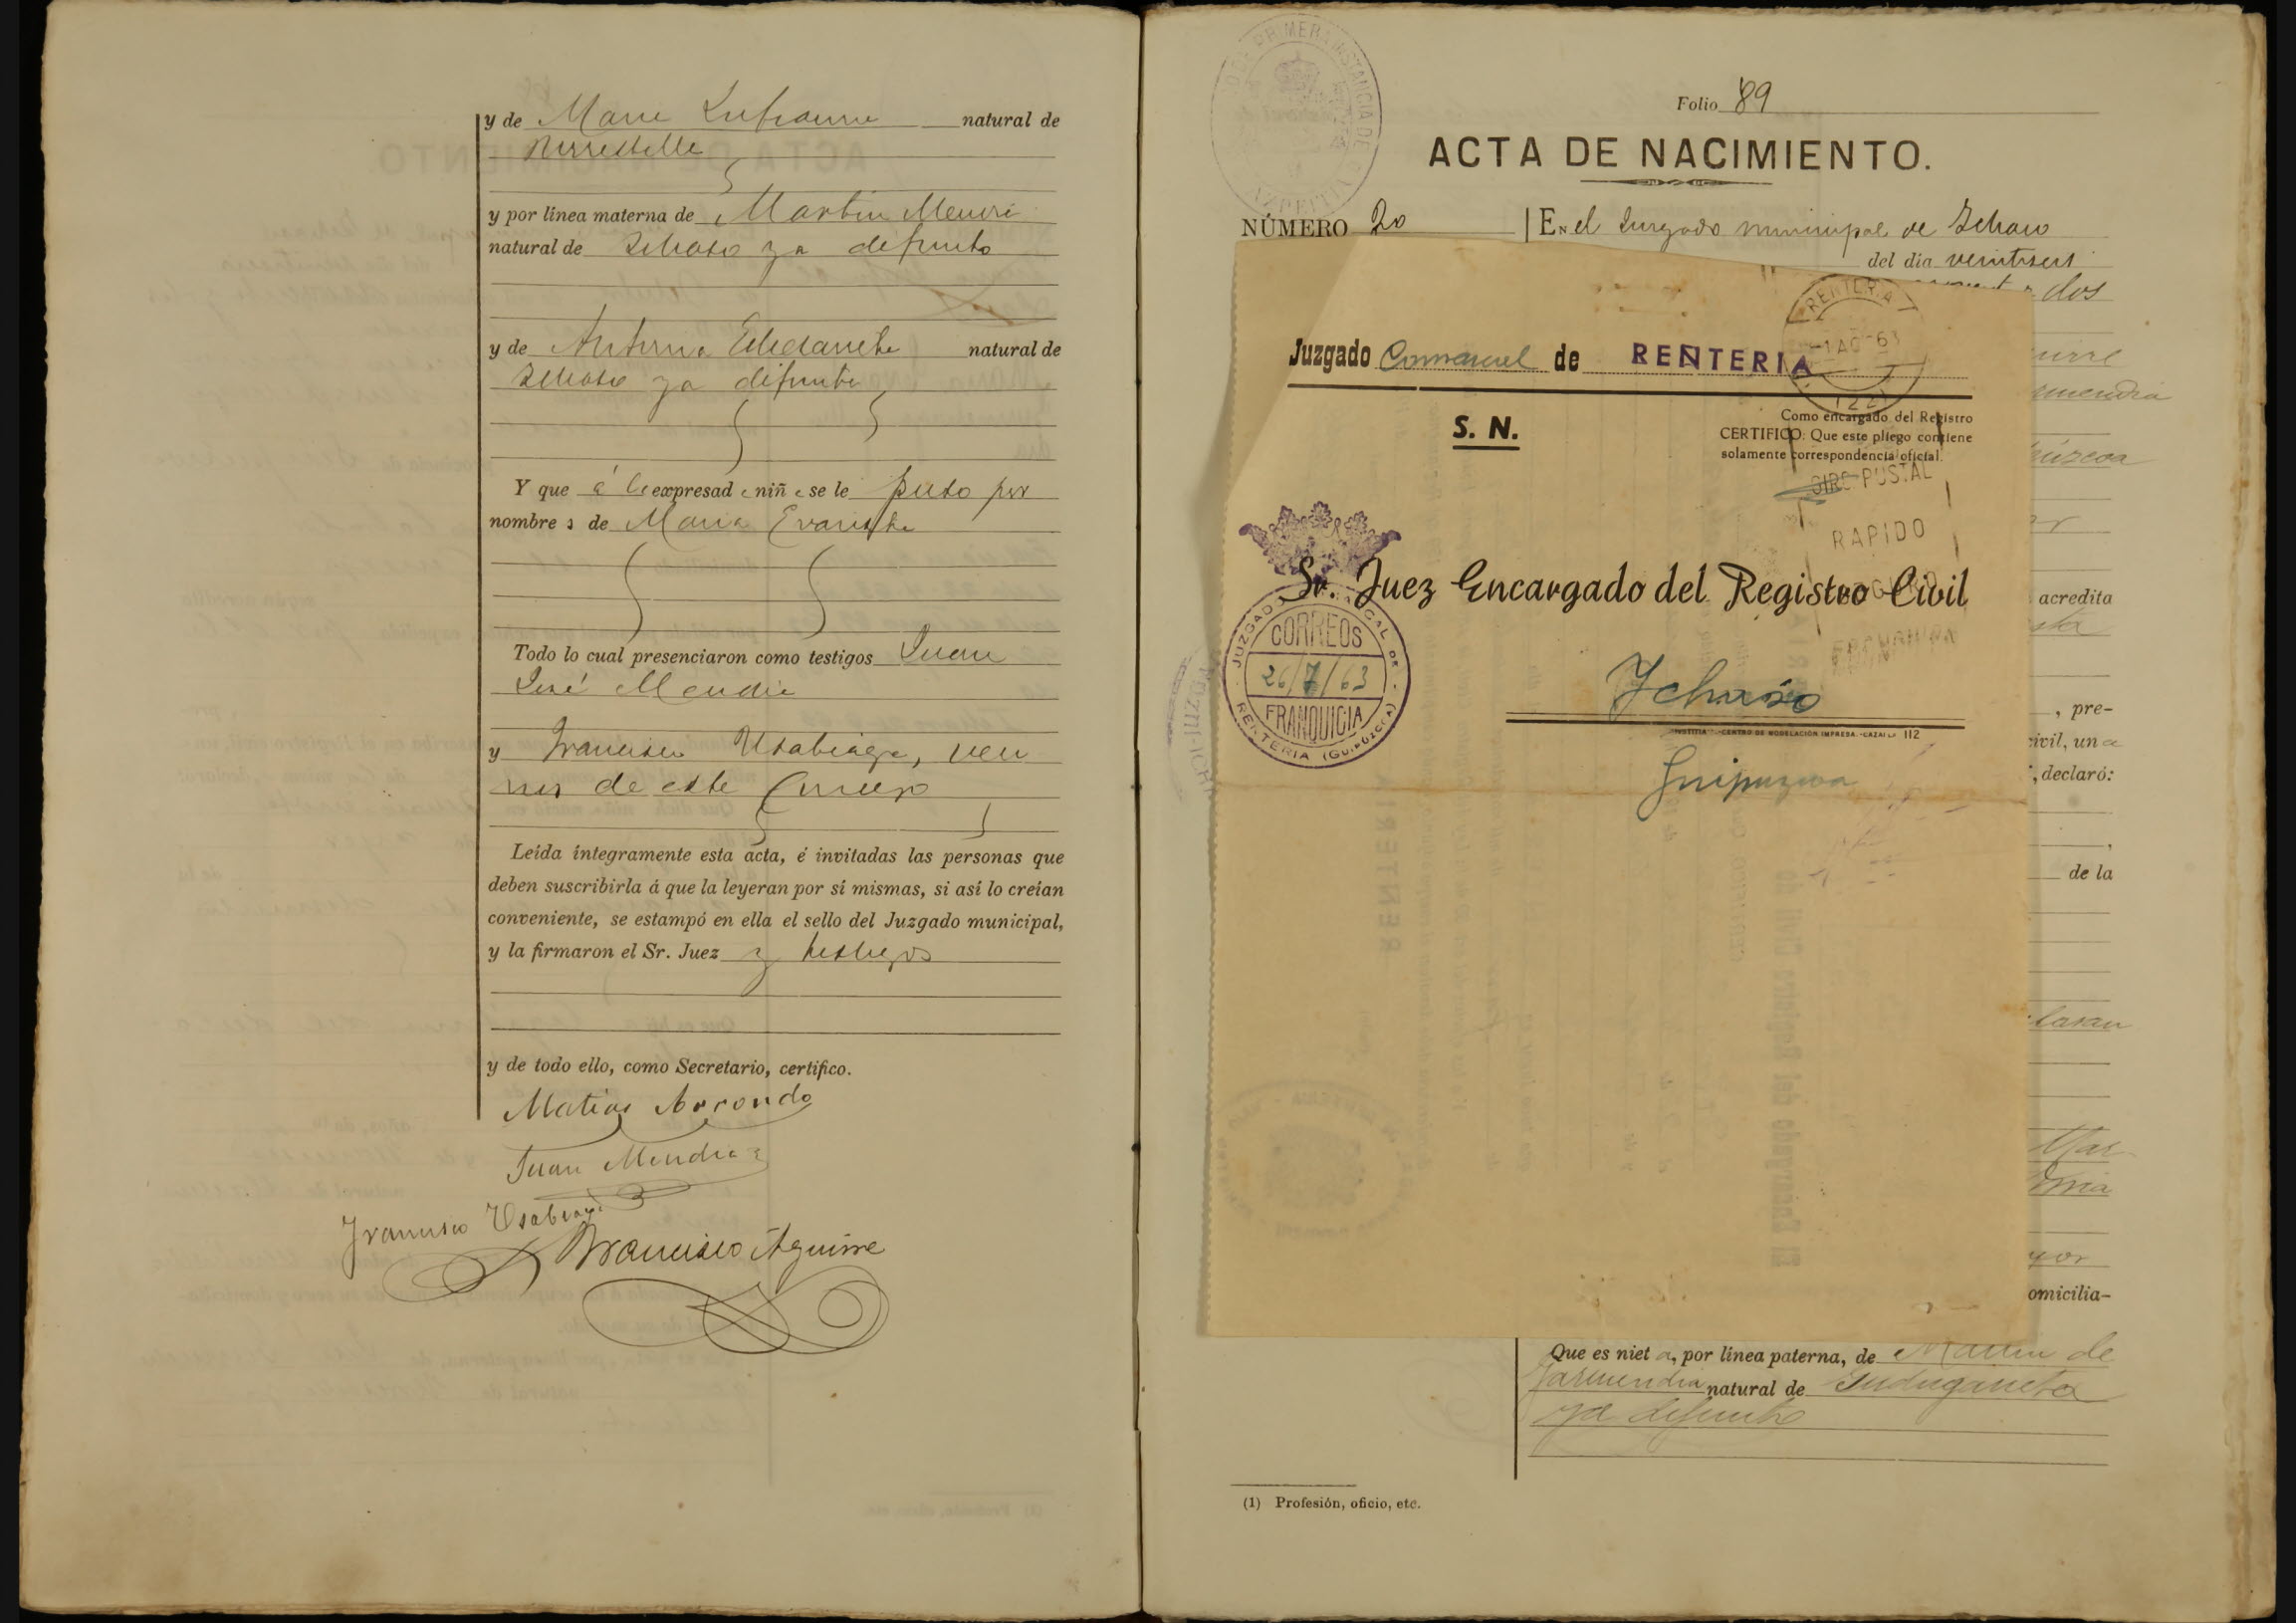 y de Maria natural de
y por línea materna de Martin Mendia
natural de Ichaso ya difunto
y de Antonia natural de
Ichaso ya difunta
Y que á la expresada niña se le puso por
nombres de Maria Evarista
Todo lo cual presenciaron como testigos Juan
José Mendia
y Francisco Usabiaga, veci
nos de este
Leída íntegramente esta acta, é invitadas las personas que
deben suscribirla á que la leyeran por sí mismas, si así lo creían
conveniente, se estampó en ella el sello del Juzgado municipal,
y la firmaron el Sr. Juez y testigos
y de todo ello, como Secretario, certifico.
Matias Arrondo
Juan Mendia
Francisco Usabiaga
Francisco Aguirre
Folio 89
ACTA DE NACIMIENTO.
NÚMERO 20
En el Juzgado municipal de Ichaso
del día veintiseis
dos
Juzgado Comarcal de RENTERIA
RENTERIA
1 AG 63
(22)
S. N.
Como encargado del Registro
CERTIFICO: Que este pliego contiene
solamente correspondencia oficial.
GIRO POSTAL
RAPIDO
Sr. Juez Encargado del Registro Civil
JUZGADO COMARCAL DE
CORREOS
26/7/63
FRANQUICIA
RENTERIA (GUIPUZCOA)
Ichaso
CENTRO DE MODELACIÓN IMPRESA. 112
Guipuzcoa
acredita
, pre-
civil, una
, declaró:
de la
omicilia-
Que es nieta, por línea paterna, de Martin de
Garmendia natural de Gudugarreta
ya difunto
(1) Profesión, oficio, etc.